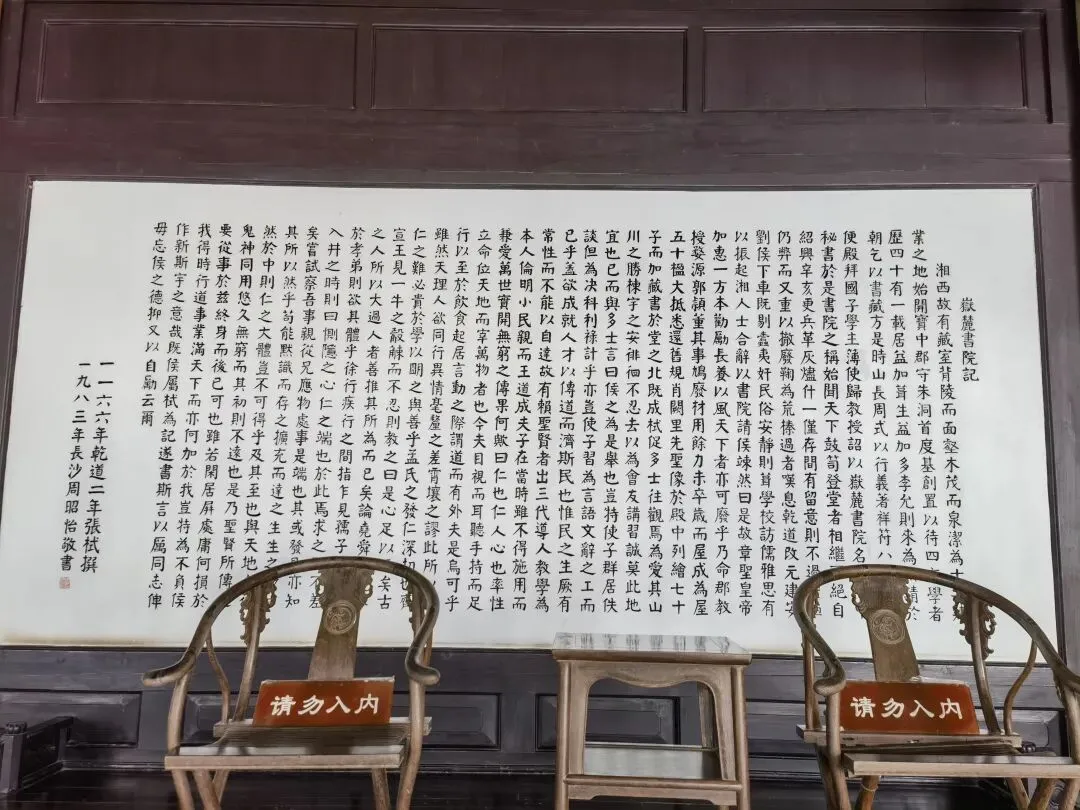 嶽麓書院記
湘西故有藏室背陵而面壑木茂而泉潔為
業之地始開寶中郡守朱洞首度基創置以待四學者
歷四十有一載居益加葺生益加多李允則來為請於
朝乞以書藏方是時山長周式以行義著祥符八
便殿拜國子學主薄使歸教授詔以嶽麓書院名
秘書於是書院之稱始聞天下鼓笥登堂者相繼絕自
紹興辛亥更兵革灰燼什一僅存間有留意則不過
仍弊而又重以撤廢鞠為荒榛過者嘆息乾道改元建安
劉侯下車既剔蠹夷奸民俗安静則葺學校訪儒雅思有
以振起湘人士合辭以書院請侯竦然曰是故章聖皇帝
加惠一方本勸勵長養以風天下者亦可廢乎乃命郡教
授婺源郭穎重其事鳩廢材用餘力未卒歲而屋成為屋
五十楹大抵悉還舊規肖闕里先聖像於殿中列繪七十
子而加藏書於堂之北既成栻促多士往觀焉為愛其山
川之勝棟字之安徘徊不忍去以為會友講習誠莫此地
宜也已而與多士言曰侯之為是舉也豈持使子群居佚
談但為决科利祿計乎亦豈使子習為言語文辭之工而
已乎盖欲成就人才以傳道而濟斯民也惟民之生厥有
常性而不能以自達故有賴聖賢者出三代導人教學為
本人倫明小民親而王道成夫子在當時雖不得施用而
兼愛萬世實開無窮之傳果何歟曰仁也仁人心也率性
立命位天地而宰萬物者也今夫目視而耳聽手持而足
行以至於飲食起居言動之際謂道而有外夫是烏可乎
雖然天理人欲同行異情毫釐之差霄壤之謬此所
仁之難必貴於學以明之與善乎孟氏之發仁深切也齊
宣王見一牛之觳觫而不忍則教之曰是心足以矣古
之人所以大過人者善推其所為而已矣論堯舜
於孝弟則欲其體乎徐行疾行之間指乍見孺子
入井之時則曰惻隱之心仁之端也於此焉求之不差
矣嘗試察吾事親從兄應物處事是端也其或發亦知
其所以然乎苟能默識而存之擴充而達之生生之
然於中則仁之大體豈不可得乎及其至也與天地
鬼神同用悠久無窮而其初則不遠也是乃聖賢所傳
要從事於兹終身而後已可也雖若閑居屏處庸何損於
我得時行道事業滿天下而亦何加於我豈特為不負侯
作新斯宇之意哉既侯屬栻為記遂書斯言以厲同志俾
毋忘侯之德抑又以自勵云爾
一一六六年乾道二年張栻撰
一九八三年長沙周昭怡敬書
请勿入内
请勿入内